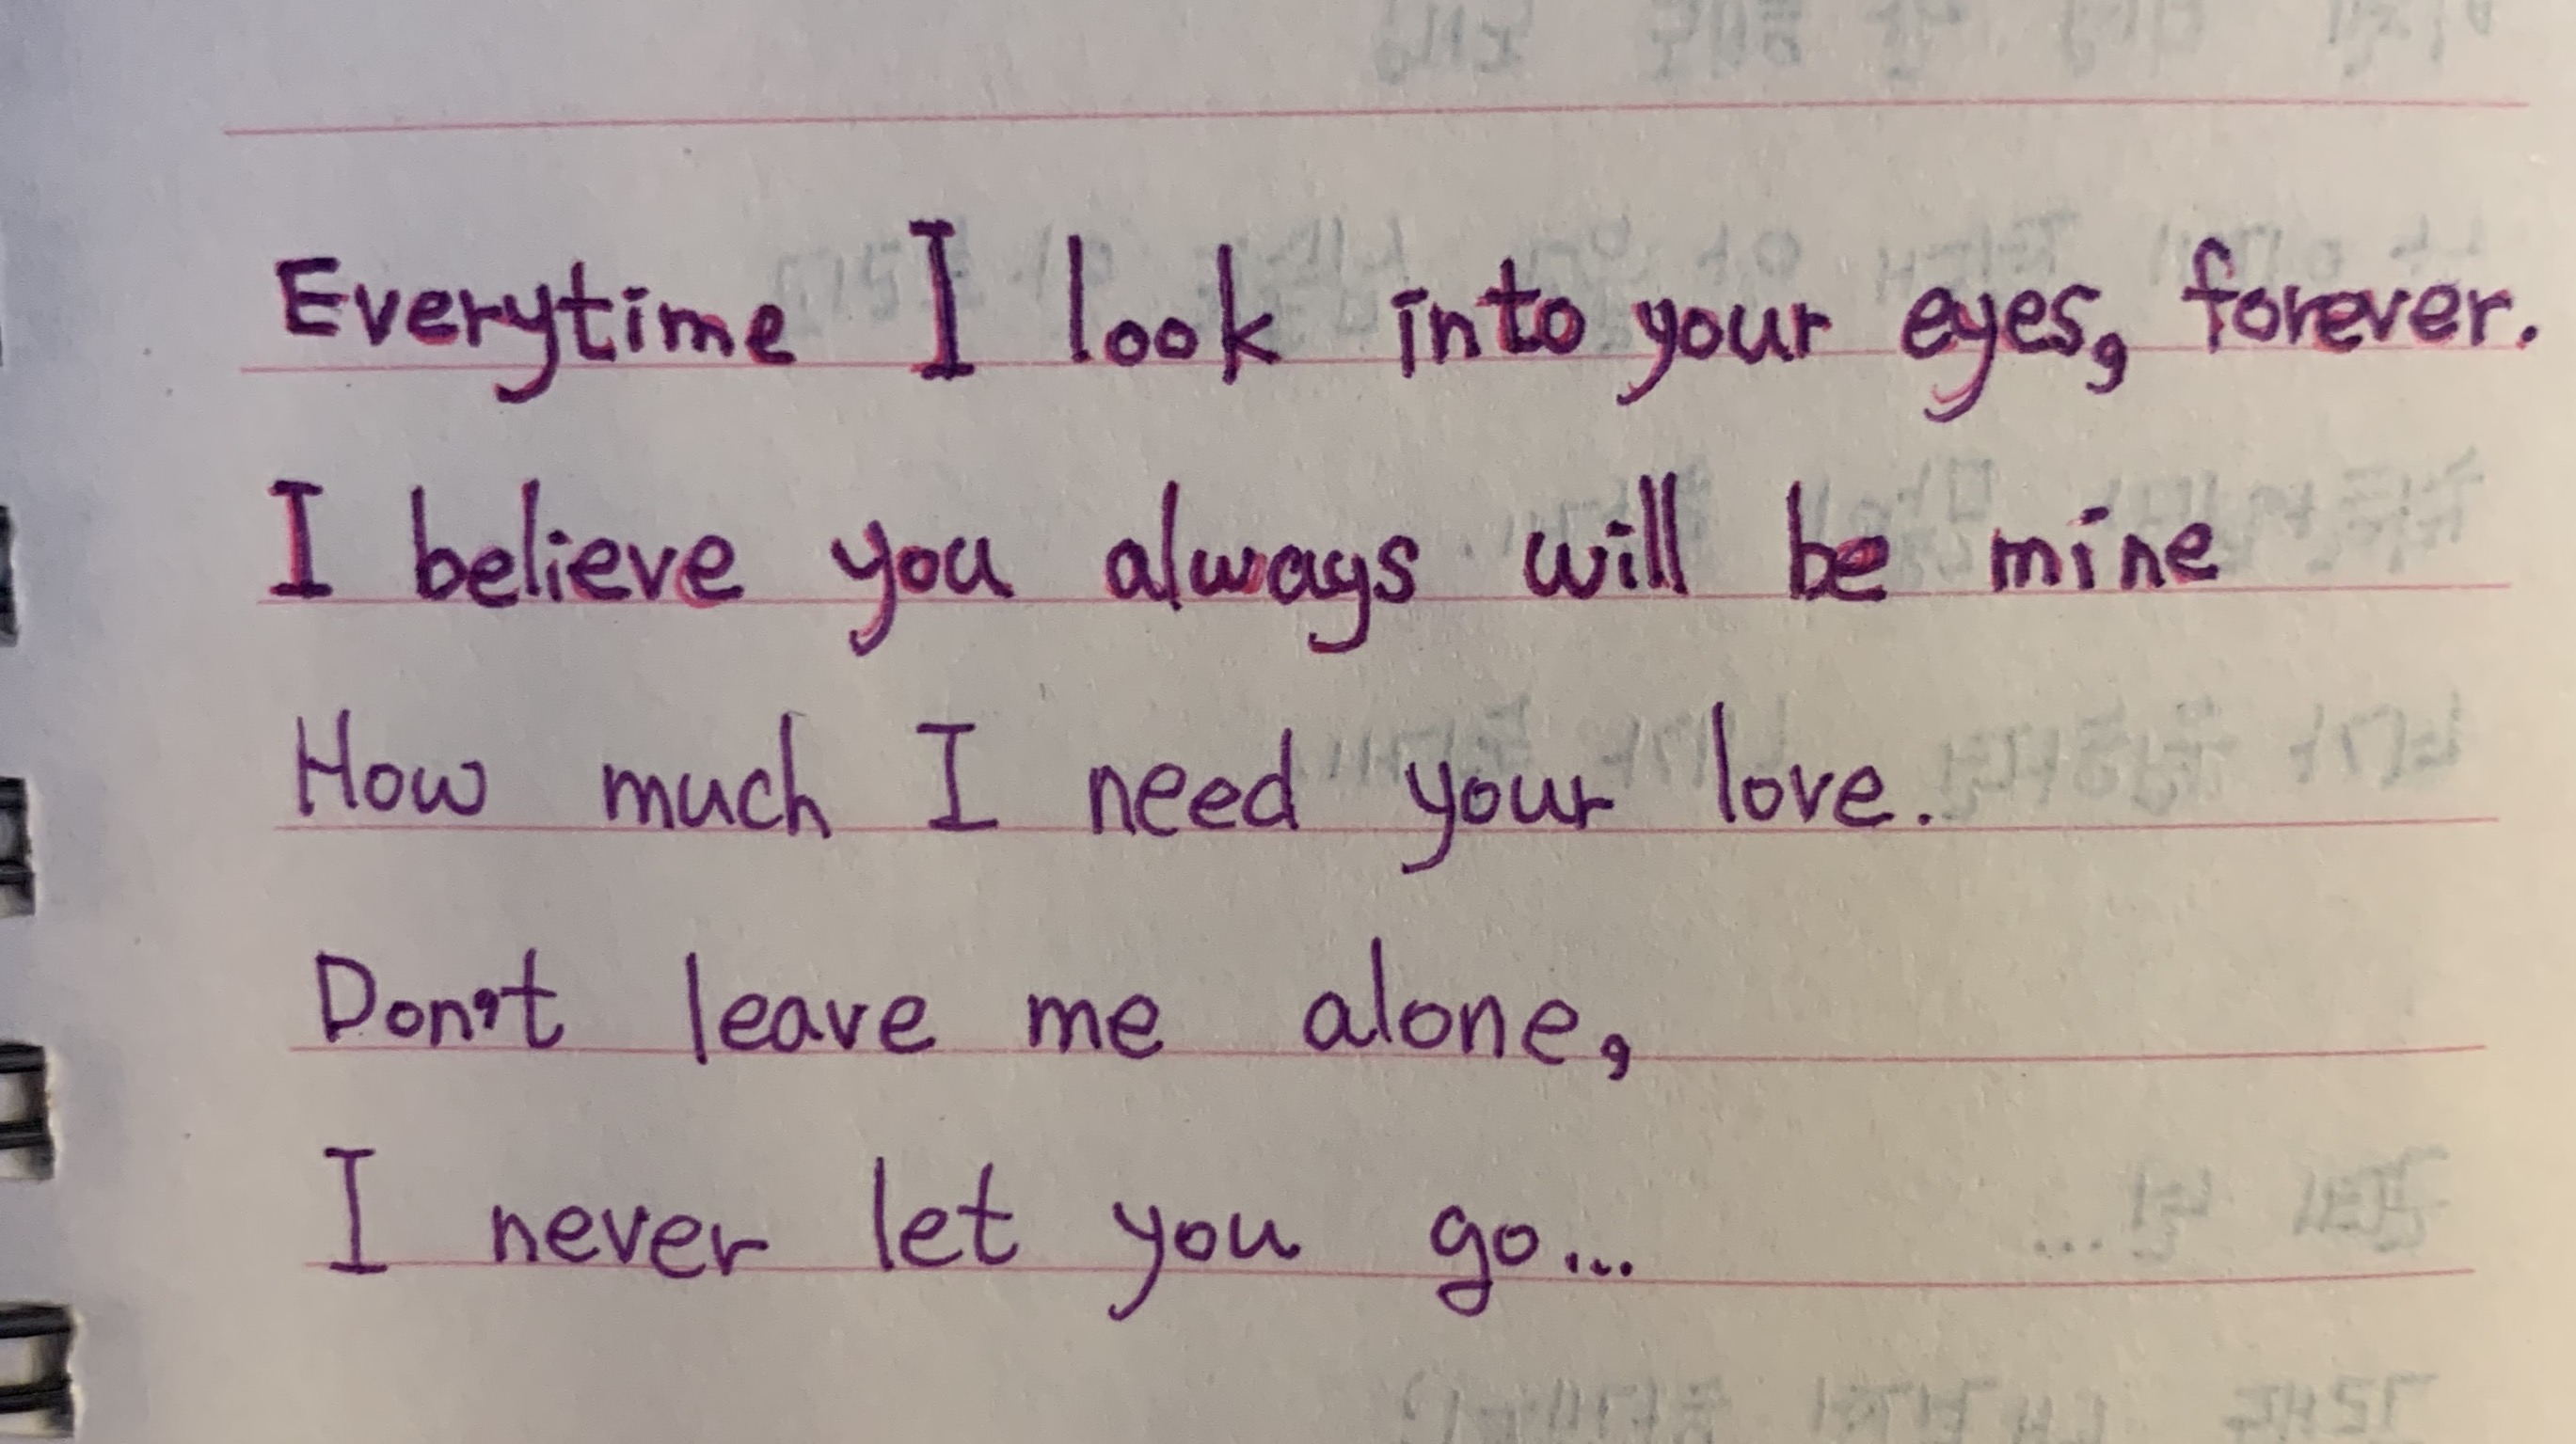 Everytime I look into your eyes, forever.
I believe you always will be mine
How much I need your love.
Don't leave me alone,
I never let you go...